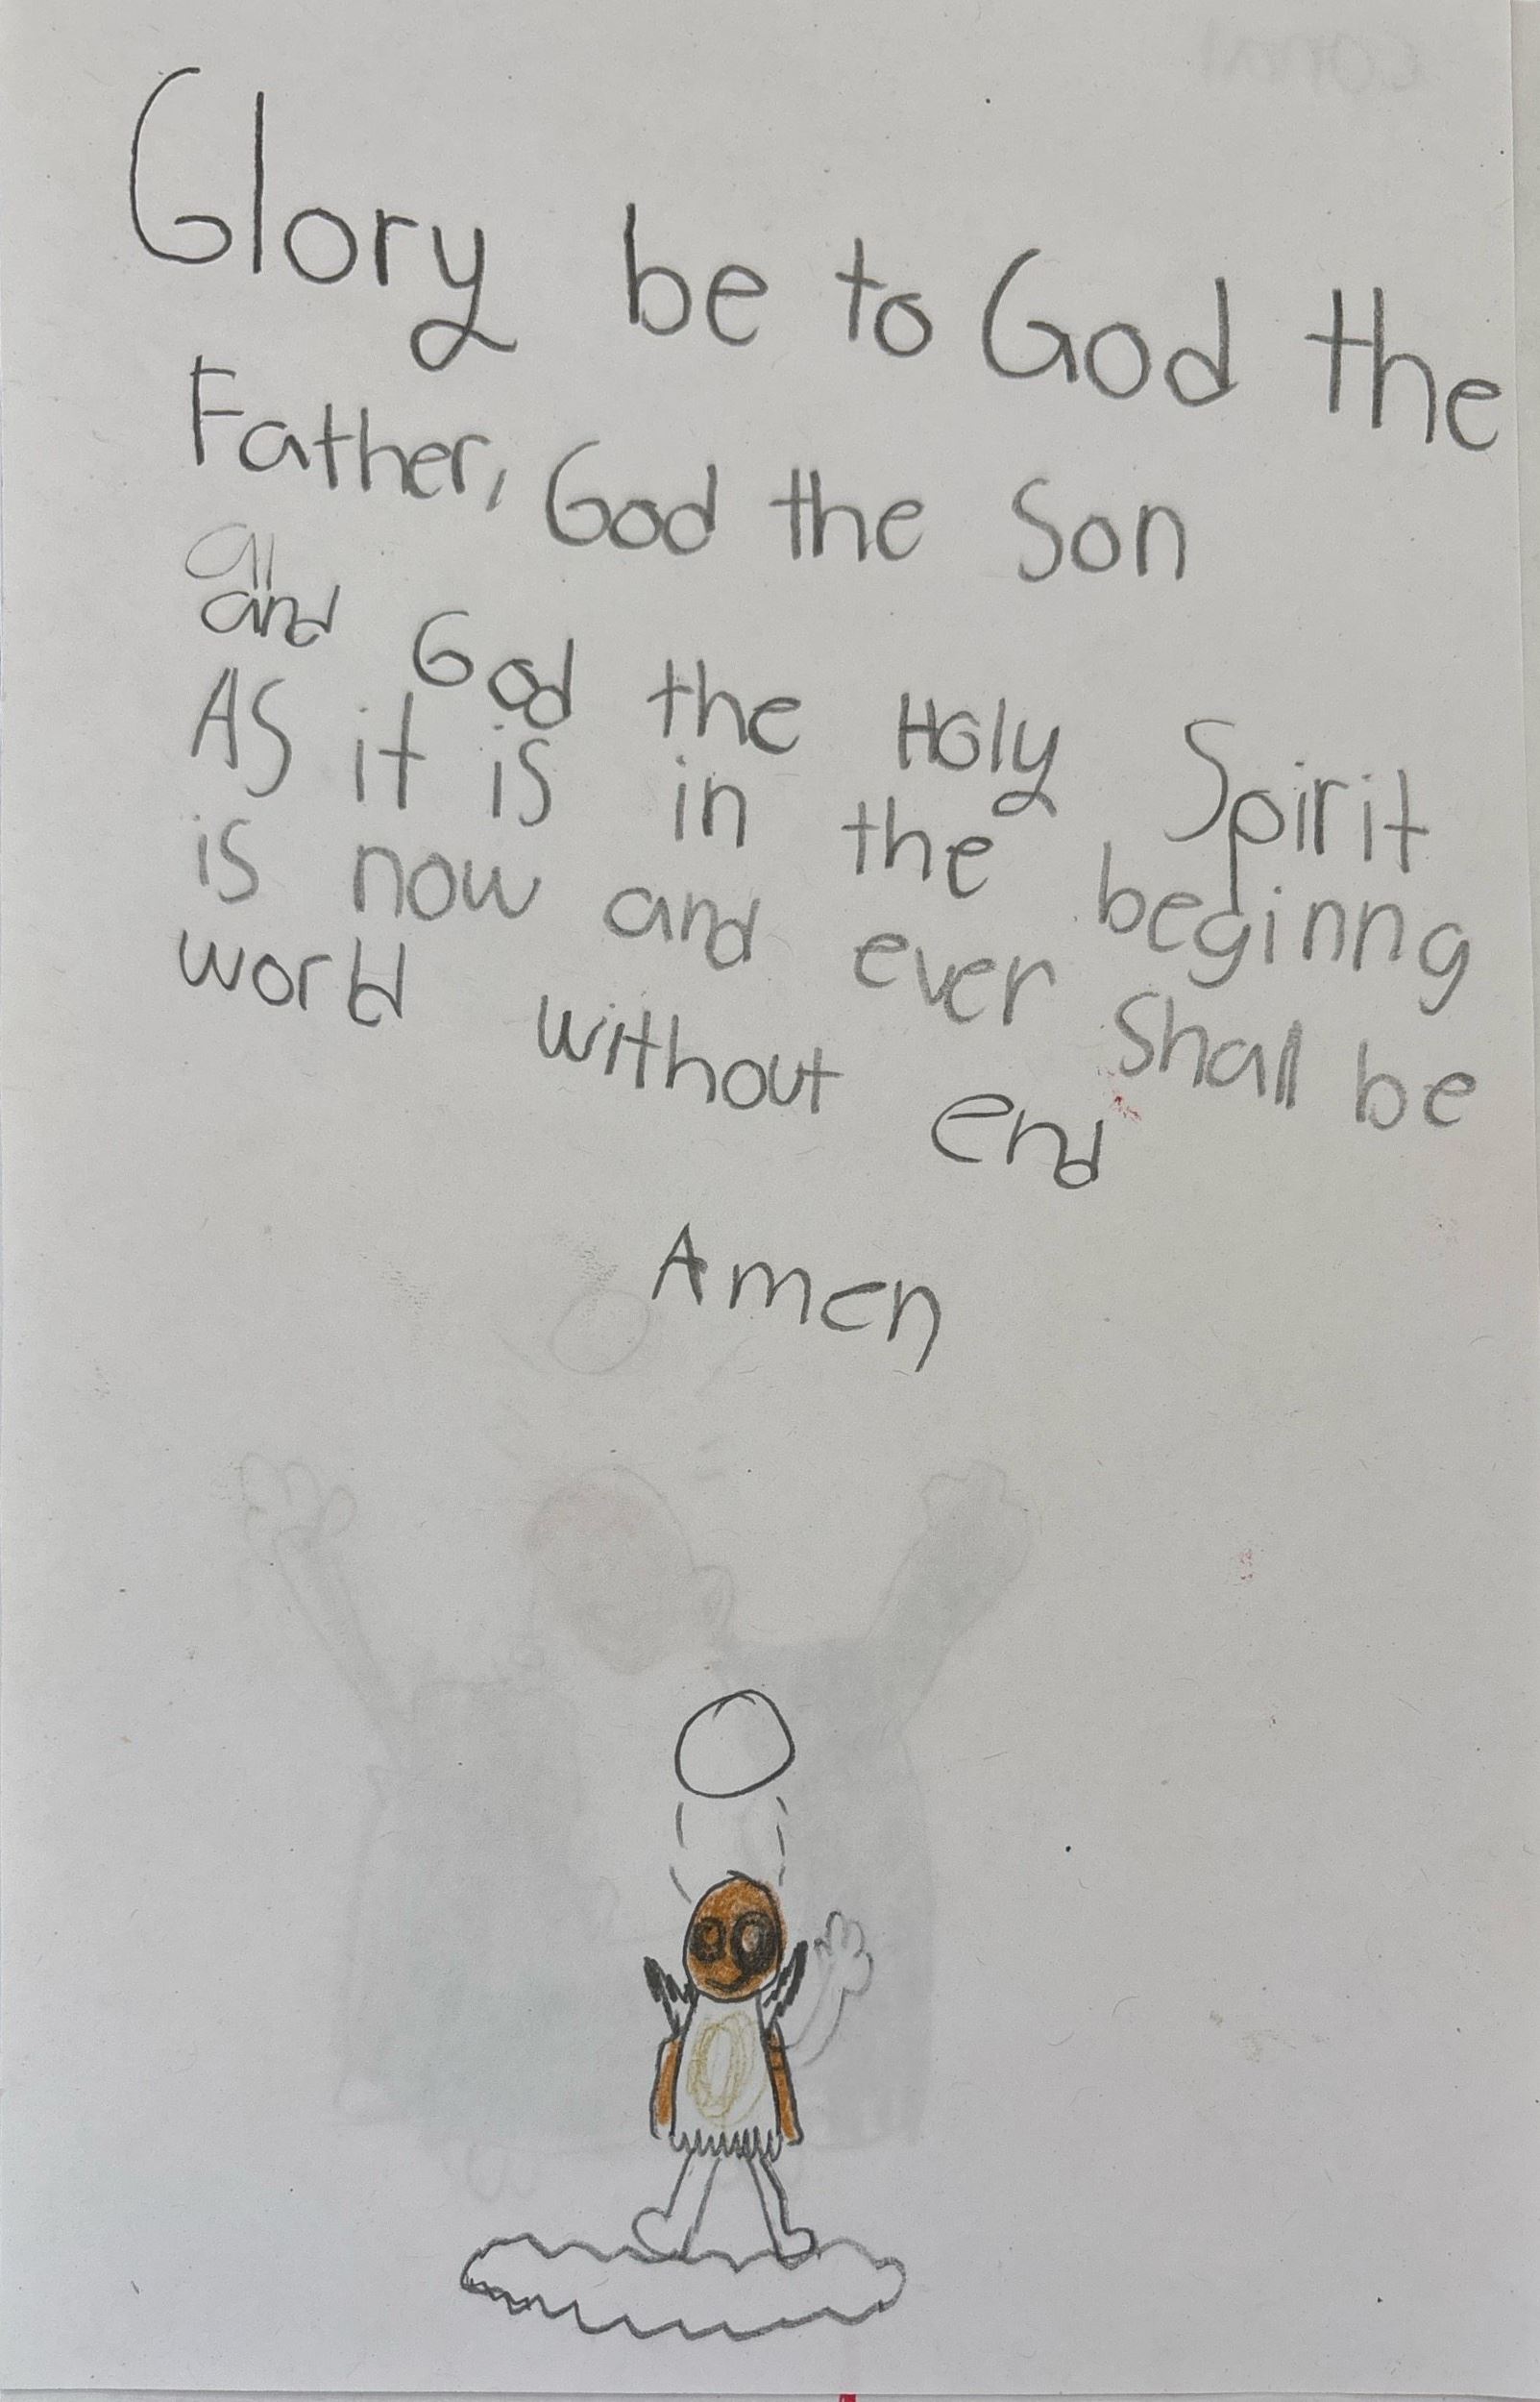 Glory be to God the
Father, God the Son
and God the Holy Spirit
AS it is in the beginng
is now and ever Shall be
world without end
Amen